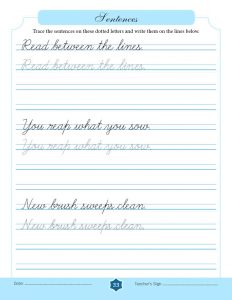 Sentences
Trace the sentences on these dotted letters and write them on the lines below.
Read between the lines.
Read between the lines.
You reap what you sow.
You reap what you sow.
New brush sweeps clean.
New brush sweeps clean.
Date: 33 Teacher's Sign